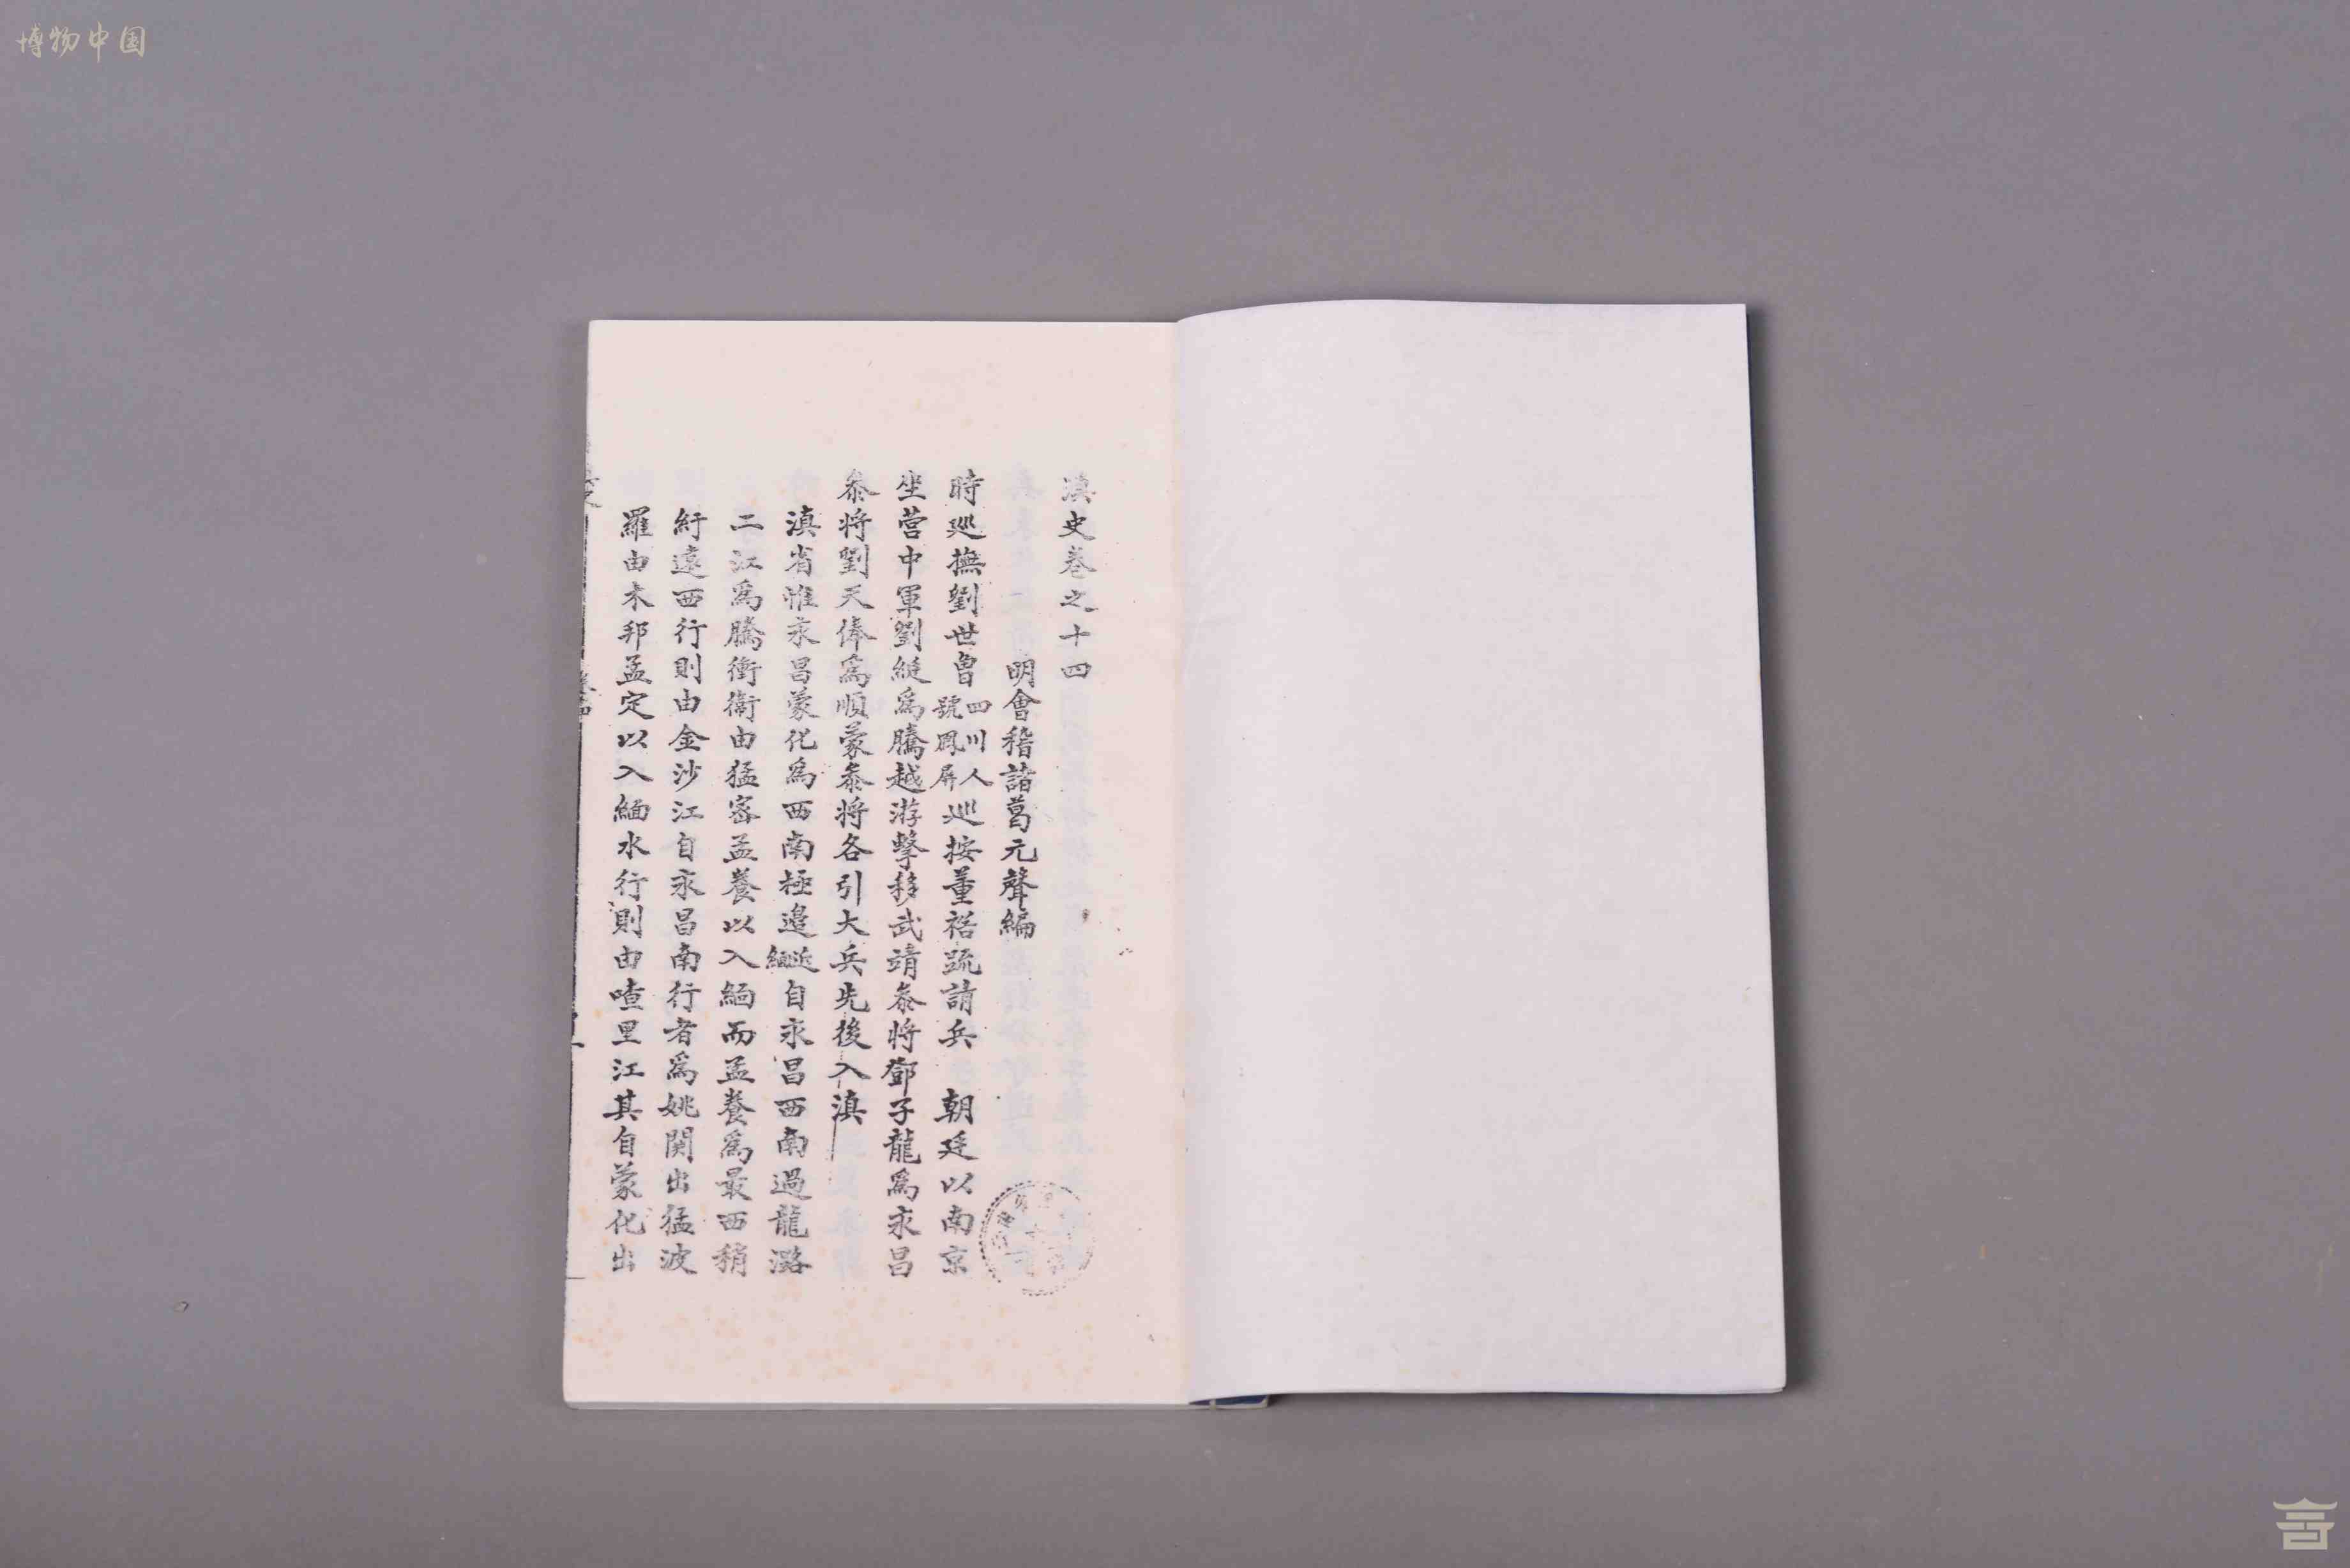 博物中国
滇史卷之十四
明會稽諸葛元聲編
時廵撫劉世曽四川人號鳳屏廵按董裕疏請兵　朝廷以南京
坐营中軍劉綎爲騰越游擊移武靖叅将鄧子龍爲永昌
叅将劉天俸爲順蒙叅将各引大兵先後入滇
滇省惟永昌蒙化爲西南極邉近緬自永昌西南過龍潞
二江爲騰衝衞由猛密孟養以入緬而孟養爲最西稍
紆遠西行則由金沙江自永昌南行者爲姚関出猛波
羅由木邦孟定以入緬水行則由喳里江其自蒙化出